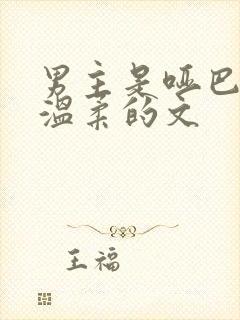 男主是哑巴
温柔的文
王福